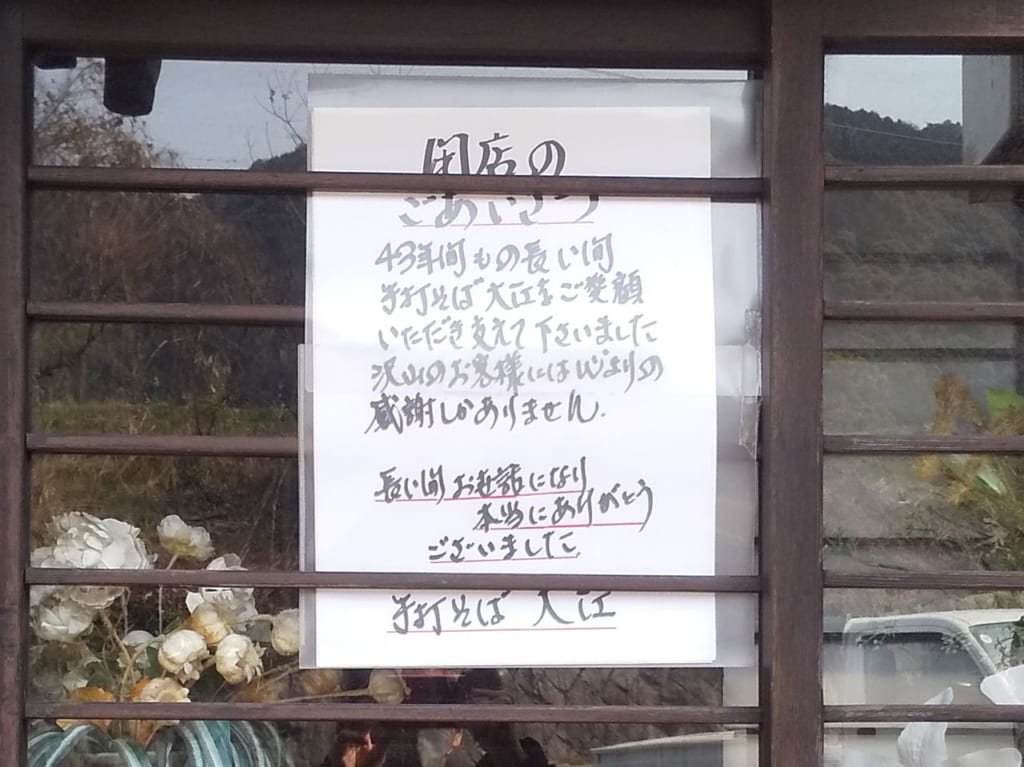 閉店の
ごあいさつ
43年間もの長い間
手打そば大江をご愛顔
いただき支えて下さいました
沢山のお客様には心よりの
感謝しかありません.
長い間お世話になり
本当にありがとう
ございました.
手打そば 大江